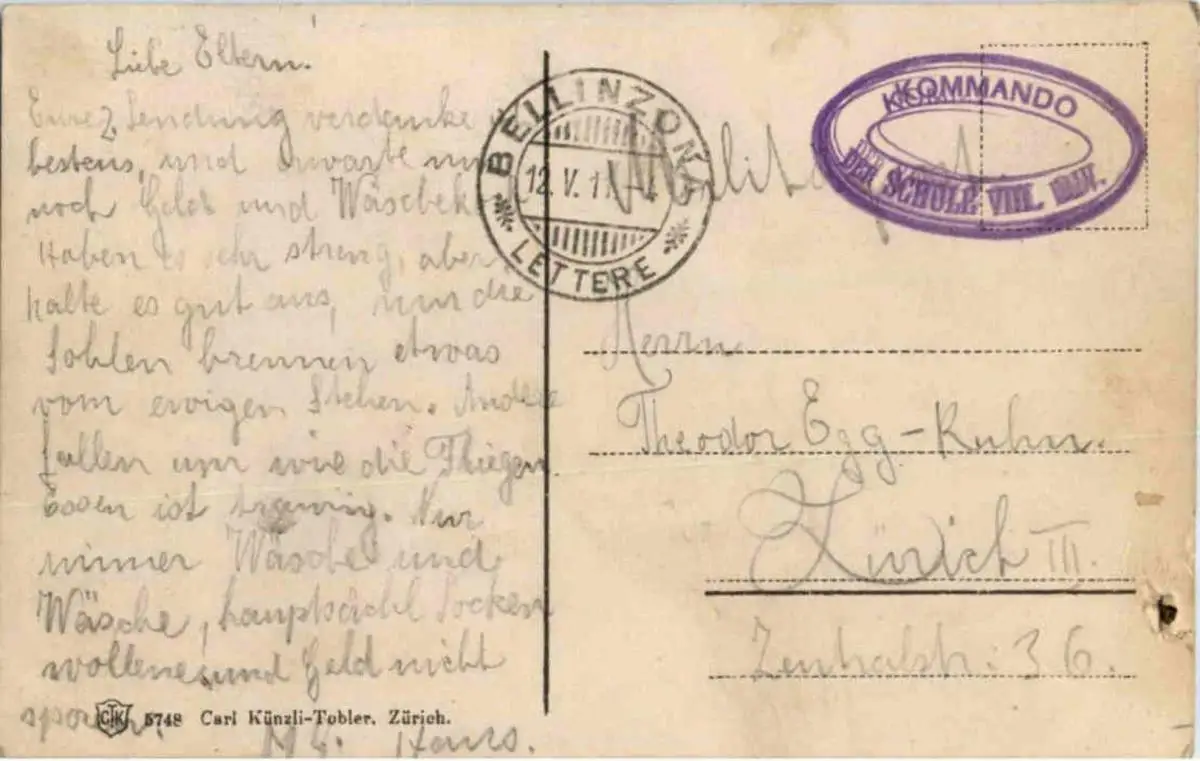 Liebe Eltern!
Eure 2 Sendung verdanke
bestens, und erwarte nur
noch Geld und Wäsche
Haben es sehr streng, aber
halte es gut aus, nur die
Sohlen brennen etwas
vom ewigen Stehen. Andere
fallen um wie die Fliegen
Essen ist traurig. Nur
immer Wäsche und
Wäsche, hauptsächl Socken
wollene und Geld nicht
sparen.
Hans.
CTK 5748 Carl Künzli-Tobler, Zürich.
BELLINZONA
12. V. 1
LETTERE
KOMMANDO
DER SCHULE VIII. DIV.
Herrn
Theodor Egg-Kuhn.
Zürich III.
Zentralstr: 36.